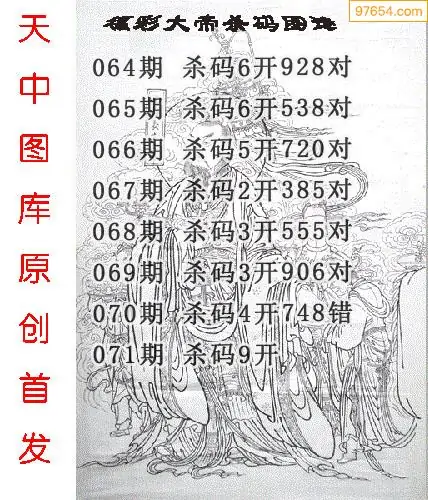 福彩大帝杀码图谜
97654.com
064期 杀码6开928对
065期 杀码6开538对
066期 杀码5开720对
067期 杀码2开385对
068期 杀码3开555对
069期 杀码3开906对
070期 杀码4开748错
071期 杀码9开
天中图库原创首发